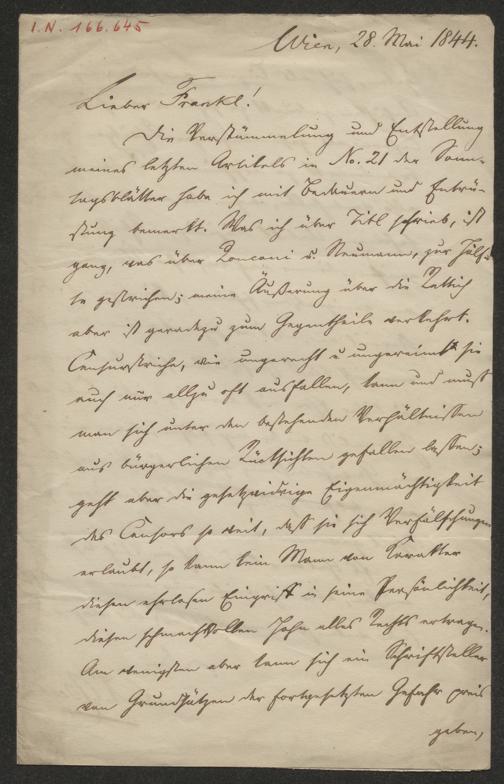 I.N. 166.645
Wien, 28. Mai 1844.
Lieber Frankl!
Die Verstümmelung und Entstellung
meines letzten Artikels in No. 21 der Sonn-
tagsblätter habe ich mit Bedauern und Entrü-
stung bemerkt. Was ich über Titl schrieb, ist
ganz, was über Ronconi u. Neumann, zur Hälf-
te gestrichen; meine Äußerung über die
aber ist geradezu zum Gegentheile verkehrt.
Censurstriche, wie ungerecht u ungereimt sie
auch nur allzu oft ausfallen, kann und muß
man sich unter den bestehenden Verhältnissen
aus bürgerlichen Rücksichten gefallen lassen;
geht aber die gesetzwidrige Eigenmächtigkeit
des Censors so weit, daß sie sich Verfälschungen
erlaubt, so kann kein Mann von Karakter
diesen ehrlosen Eingriff in seine Persönlichkeit,
diesen schmachvollen Hohn alles Rechts ertragen.
Am wenigsten aber kann sich ein Schriftsteller
von Grundsätzen der fortgesetzten Gefahr preis
geben,